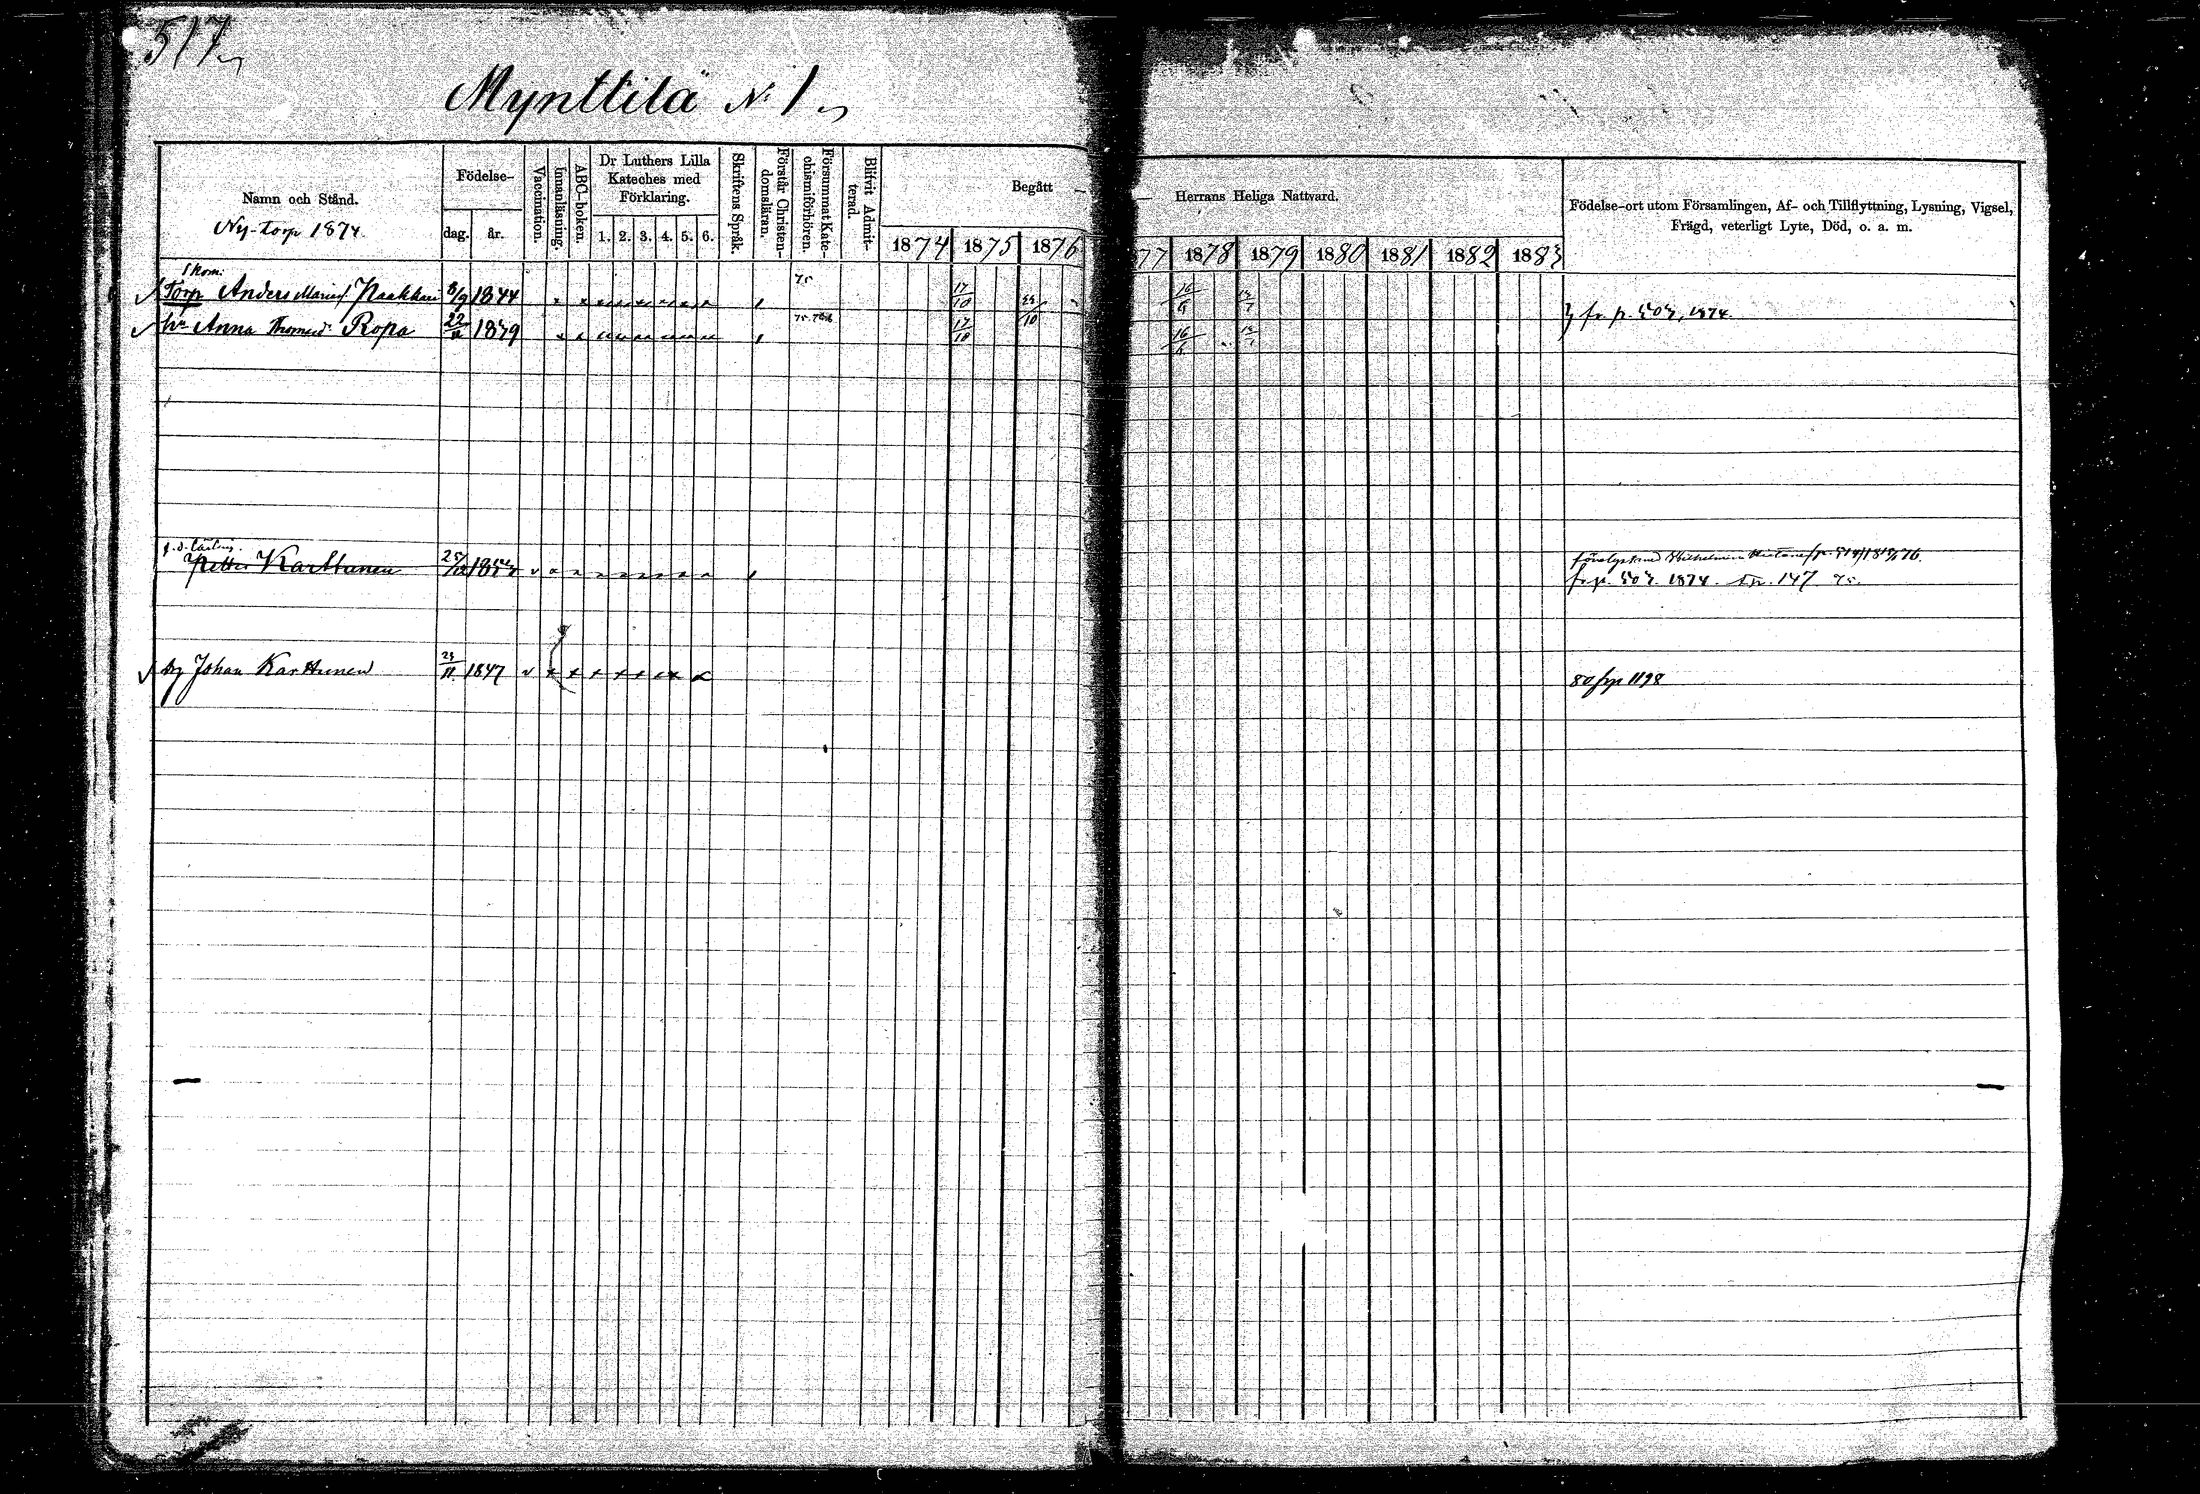 517
Mynttilä N:o 1
Namn och Stånd.
Ny-torp 1874.
Födelse-
dag.
år.
Vaccination.
Innanläsning.
ABC-boken.
Dr Luthers Lilla Kateches med Förklaring.
1. 2. 3. 4. 5. 6.
Skriftens Språk.
Förstår Christendomsläran.
Försummat Katechismiförhören.
Blifvit Admitterad.
Begått
Herrans Heliga Nattvard.
1874 1875 1876 77 1878 1879 1880 1881 1882 1883
Födelse-ort utom Församlingen, Af- och Tillflyttning, Lysning, Vigsel,
Frägd, veterligt Lyte, Död, o. a. m.
Torp Anders Paakkari 8/9 1844 75 17/10 16/6
fr. p. 507, 1874.
hu Anna Thomasd: Ropa 22 1839 17/10 16/6
Petter Karttunen 25
fr p. 507. 1874. 147 75.
Johan Karttunen 23/11 1847
80 frp 1198